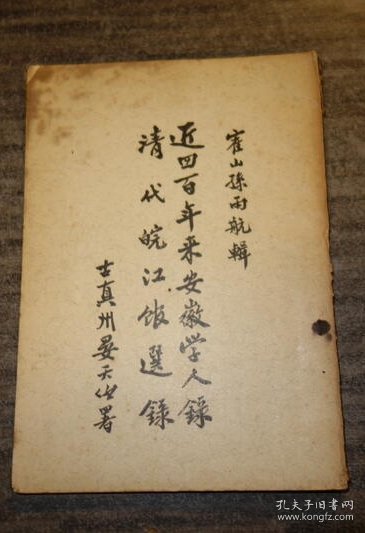 霍山孫雨航輯
近四百年来安徽学人錄
清代皖江館選錄
古真州晏天署
孔夫子旧书网
www.kongfz.com